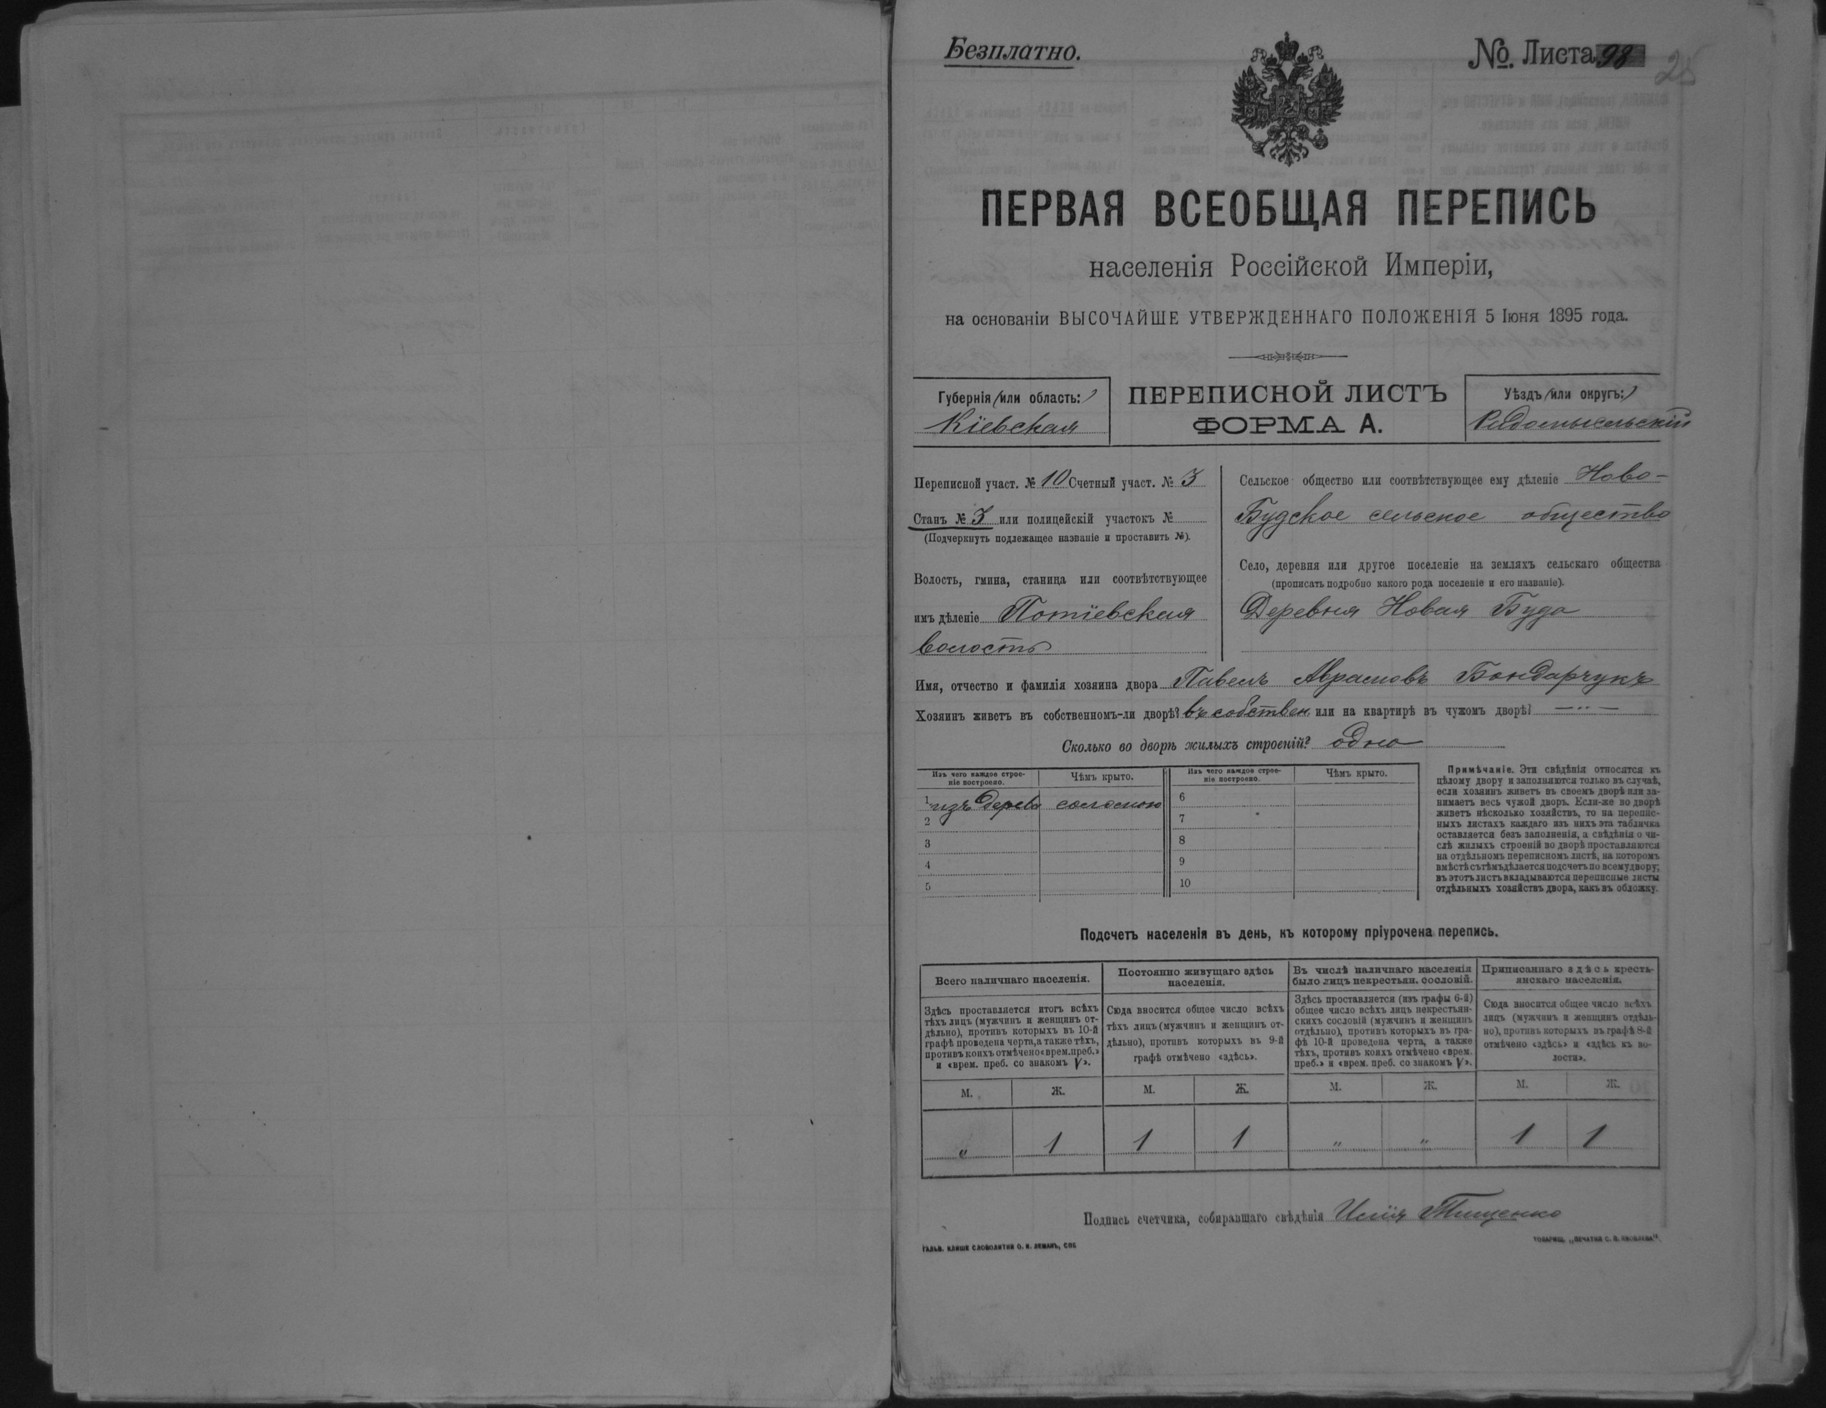 Безплатно.
№ Листа 98
25
ПЕРВАЯ ВСЕОБЩАЯ ПЕРЕПИСЬ
населенія Россійской Имперіи,
на основаніи ВЫСОЧАЙШЕ УТВЕРЖДЕННАГО ПОЛОЖЕНІЯ 5 Іюня 1895 года.
Губернія (или область:)
Кіевская
ПЕРЕПИСНОЙ ЛИСТЪ
ФОРМА А.
Уѣздъ (или округъ:)
Радомысльскій
Переписной участ. № 10 Счетный участ. № 3
Станъ № 3 или полицейскій участокъ №
(Подчеркнуть подлежащее названіе и проставить №).
Волость, гмина, станица или соотвѣтствующее
имъ дѣленіе Потіевская
волость
Сельское общество или соотвѣтствующее ему дѣленіе Ново-
Будское сельское общество
Село, деревня или другое поселеніе на земляхъ сельскаго общества
(прописать подробно какого рода поселеніе и его названіе).
Деревня Новая Буда
Имя, отчество и фамилія хозяина двора Павелъ Аврамовъ Бондарчукъ
Хозяинъ живетъ въ собственномъ-ли дворѣ? въ собствен или на квартирѣ въ чужомъ дворѣ? — „ —
Сколько во дворѣ жилыхъ строеній? одно
Изъ чего каждое строе-
ніе построено.
Чѣмъ крыто.
Изъ чего каждое строе-
ніе построено.
Чѣмъ крыто.
1 изъ дерева соломою
2
3
4
5
6
7
8
9
10
Примѣчаніе. Эти свѣдѣнія относятся къ
цѣлому двору и заполняются только въ случаѣ,
если хозяинъ живетъ въ своемъ дворѣ или за-
нимаетъ весь чужой дворъ. Если-же во дворѣ
живетъ нѣсколько хозяйствъ, то на перепис-
ныхъ листахъ каждаго изъ нихъ эта табличка
оставляется безъ заполненія, а свѣдѣнія о чи-
слѣ жилыхъ строеній во дворѣ проставляются
на отдѣльномъ переписномъ листѣ, на которомъ
вмѣстѣ съ тѣмъ дѣлается подсчетъ по всему двору;
въ этотъ листъ вкладываются переписные листы
отдѣльныхъ хозяйствъ двора, какъ въ обложку.
Подсчетъ населенія въ день, къ которому пріурочена перепись.
Всего наличнаго населенія.
Здѣсь проставляется итогъ всѣхъ
тѣхъ лицъ (мужчинъ и женщинъ от-
дѣльно), противъ которыхъ въ 10-й
графѣ проведена черта, а также тѣхъ,
противъ коихъ отмѣчено «врем. преб.»
и «врем. преб. со знакомъ V».
Постоянно живущаго здѣсь
населенія.
Сюда вносится общее число всѣхъ
тѣхъ лицъ (мужчинъ и женщинъ от-
дѣльно), противъ которыхъ въ 9-й
графѣ отмѣчено «здѣсь».
Въ числѣ наличнаго населенія
было лицъ некрестьян. сословій.
Здѣсь проставляется (изъ графы 6-й)
общее число всѣхъ лицъ некрестьян-
скихъ сословій (мужчинъ и женщинъ
отдѣльно), противъ которыхъ въ гра-
фѣ 10-й проведена черта, а также
тѣхъ, противъ коихъ отмѣчено «врем.
преб.» и «врем. преб. со знакомъ V».
Приписаннаго здѣсь кресть-
янскаго населенія.
Сюда вносится общее число всѣхъ
лицъ (мужчинъ и женщинъ отдѣль-
но), противъ которыхъ въ графѣ 8-й
отмѣчено «здѣсь» и «здѣсь къ во-
лости».
М. Ж. М. Ж. М. Ж. М. Ж.
„ 1 1 1 „ „ 1 1
Подпись счетчика, собиравшаго свѣдѣнія Илія Тищенко
ГАЛЬВ. КЛИШЕ СЛОВОЛИТНИ О. И. ЛЕМАНЪ, СПБ.
ТОВАРИЩ. „ПЕЧАТНЯ С. П. ЯКОВЛЕВА".